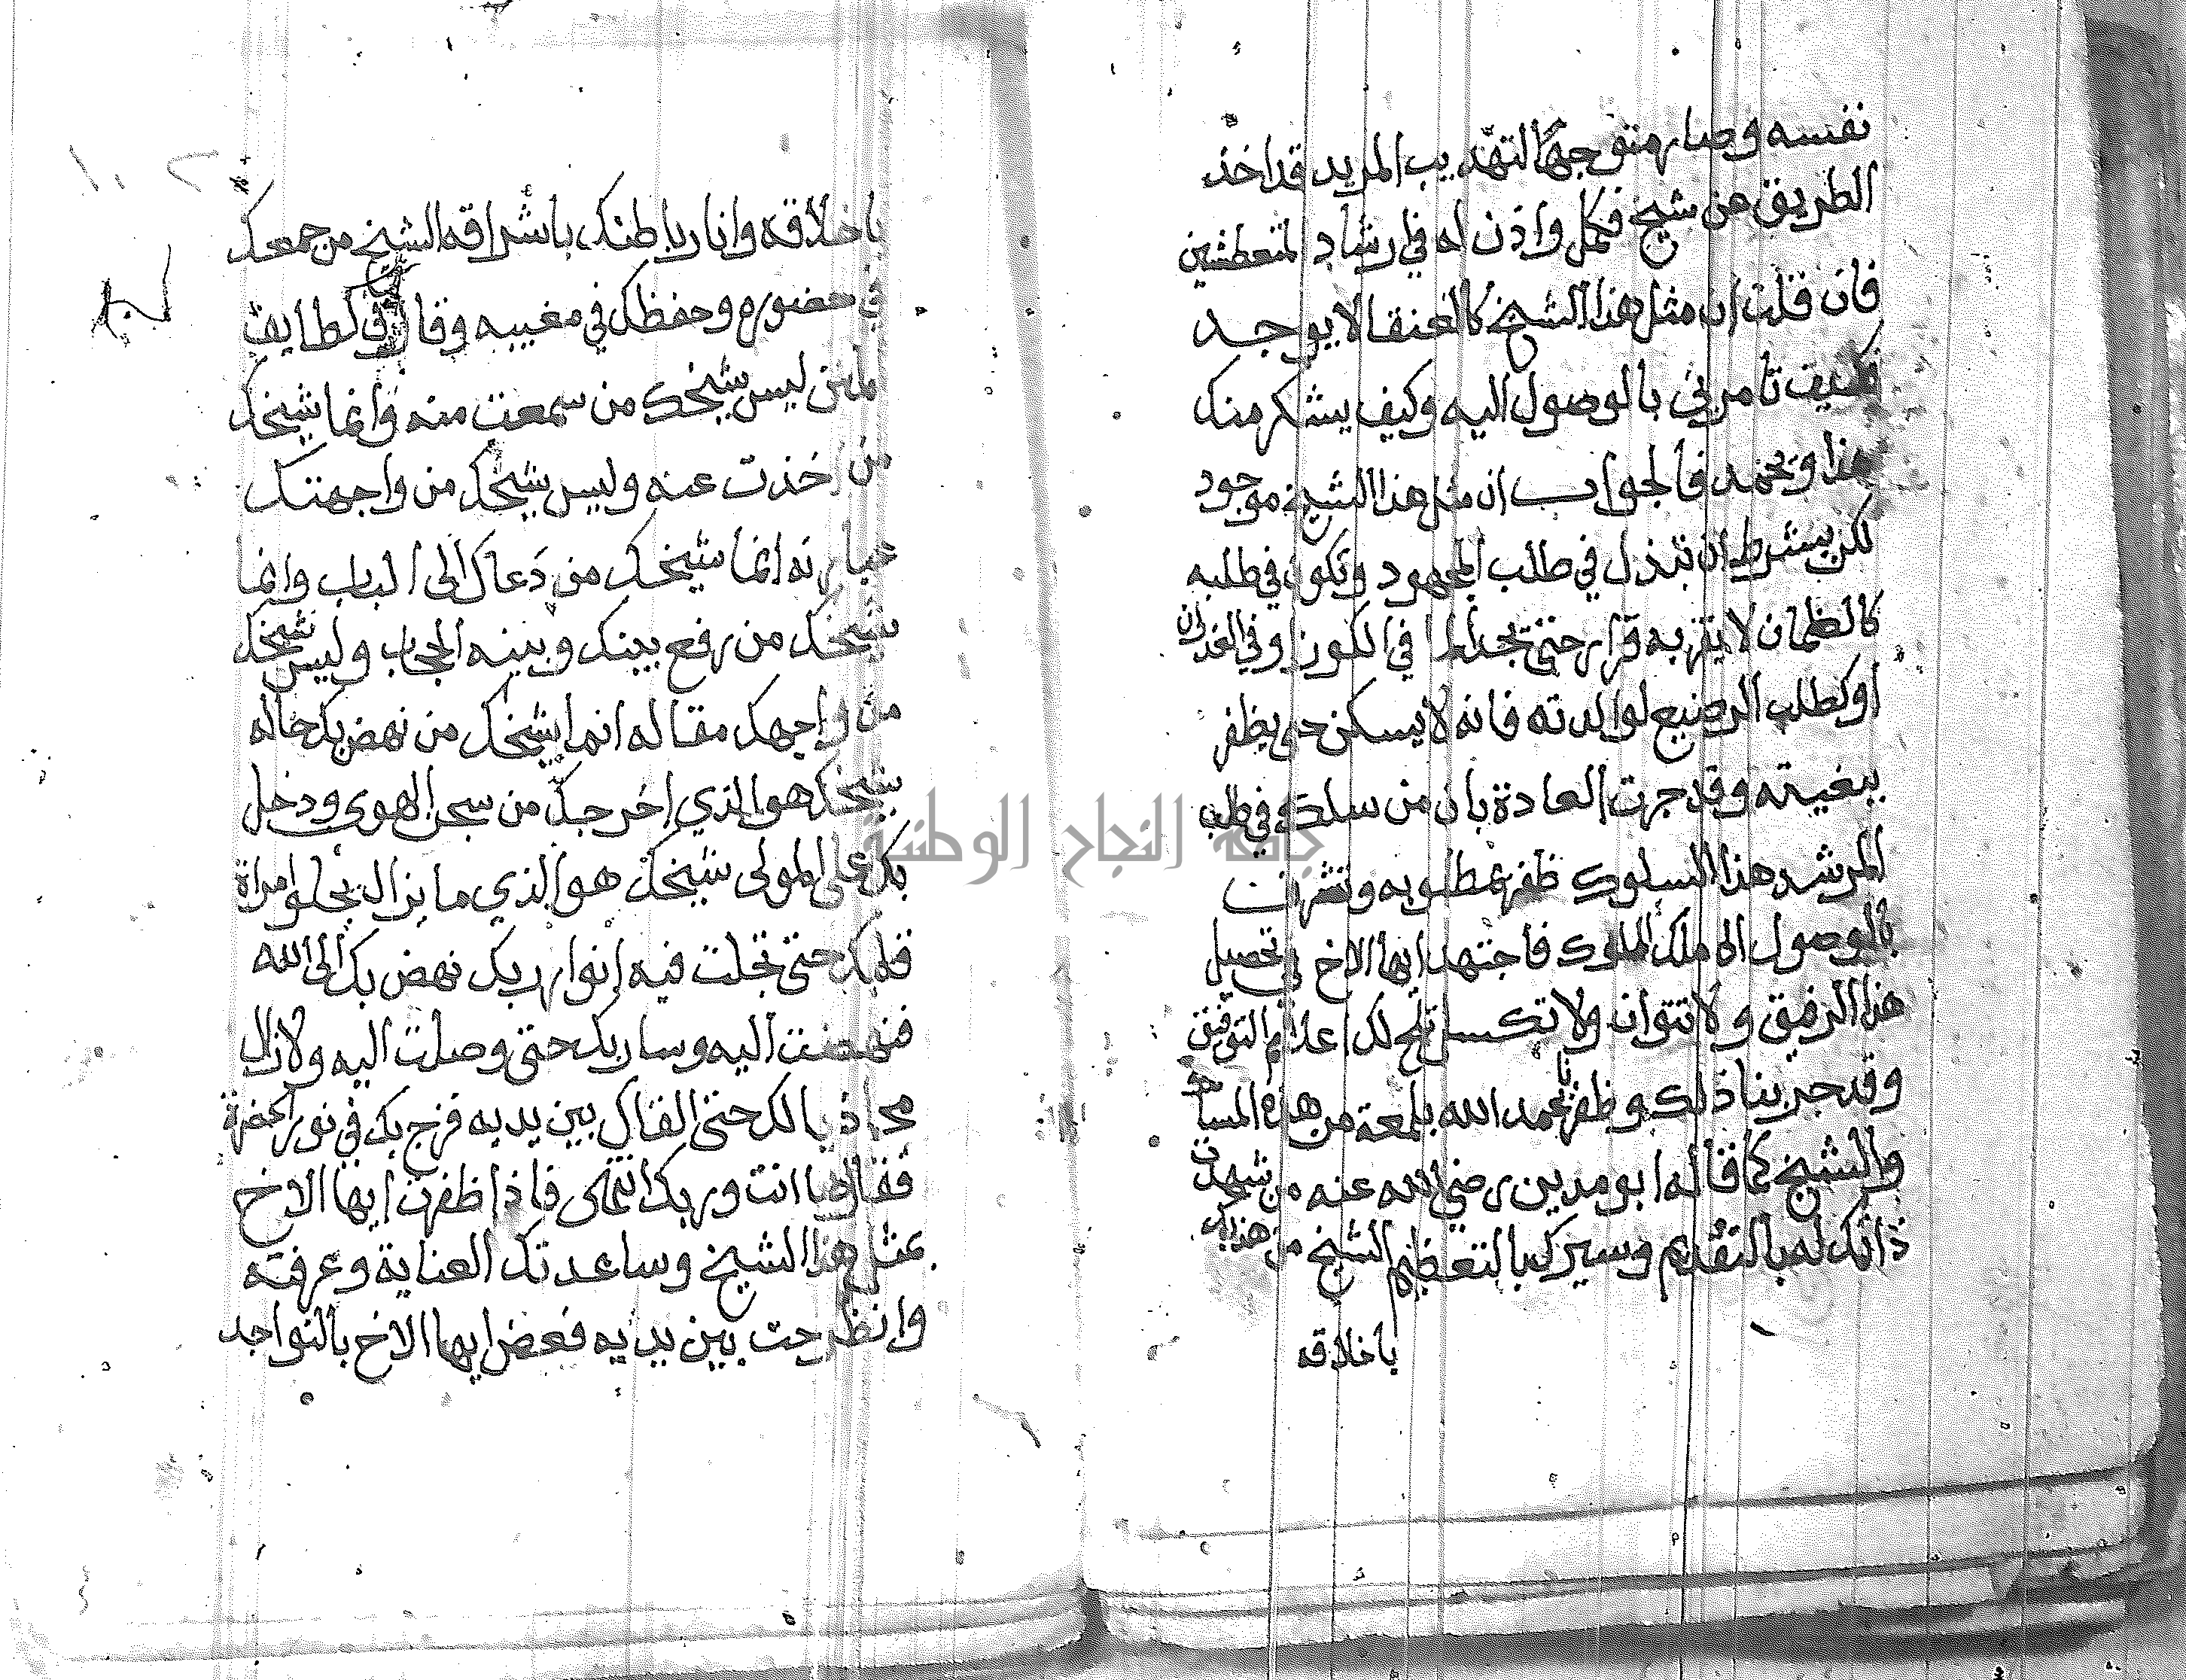 نفسه وصار متوجها لتهذيب المريد قد اخذ
الطريق عن شيخ فكمل واذن له في ارشاد المتعطشين
فان قلت ان مثل هذا الشيخ كالعنقا لا يوجد
فكيف تامرني بالوصول اليه وكيف يشكر منك
هذا ويحمد فالجواب ان مثل هذا الشيخ موجود
لكن بيشرط ان تبذل في طلب المجهود وتكون في طلبه
كالظمان لا يقر به قرار حتى يجد الما في الكوز او في الغدران
او كطلب الرضيع لوالدته فانه لا يسكن حتى يظفر
ببغيته وقد جرت العادة بان من سلك في طلب
المرشد هذا السلوك ظفر بمطلوبه وتشرفت
بالوصول الى ملك الملوك فاجتهد ايها الاخ في تحصيل
هذا الرفيق ولا تتوان ولا تكسل تلح لك اعلام التوفيق
وقد جربنا ذلك وظفرنا بحمد الله بلمعة من هذه المسالك
والشيخ كما قاله ابو مدين رضي الله عنه من شهدت
ذاتك له بالتقديم وسيرك بالتعظيم الشيخ من هذبك
باخلاقه
باخلاقه وانار باطنك باشراقه الشيخ من جمعك
في حضوره وحفظك في مغيبه وقال في لطايف
المنن ليس شيخك من سمعت منه وانما شيخك
من اخذت عنه وليس شيخك من واجهتك
عبارته انما شيخك من دعاك الى الباب وانما
شيخك من رفع بينك وبينه الحجاب وليس شيخك
من واجهك مقاله انما شيخك من نهض بك حاله
شيخك هو الذي اخرجك من سجن الهوى ودخل
بك على المولى شيخك هو الذي ما يزال يجلو امراة
قلبك حتى تجلت فيه انوار ربك نهض بك الى الله
فنهضت اليه وسار بك حتى وصلت اليه ولا زال
محاذيا لك حتى القاك بين يديه فزج بك في نور الحضرة
فقال ها انت وربك انتهى فاذا ظفرت ايها الاخ
بمثل هذا الشيخ وساعدتك العناية وعرفته
وانطرحت بين يديه فعض ايها الاخ بالنواجد
جامعة النجاح الوطنية